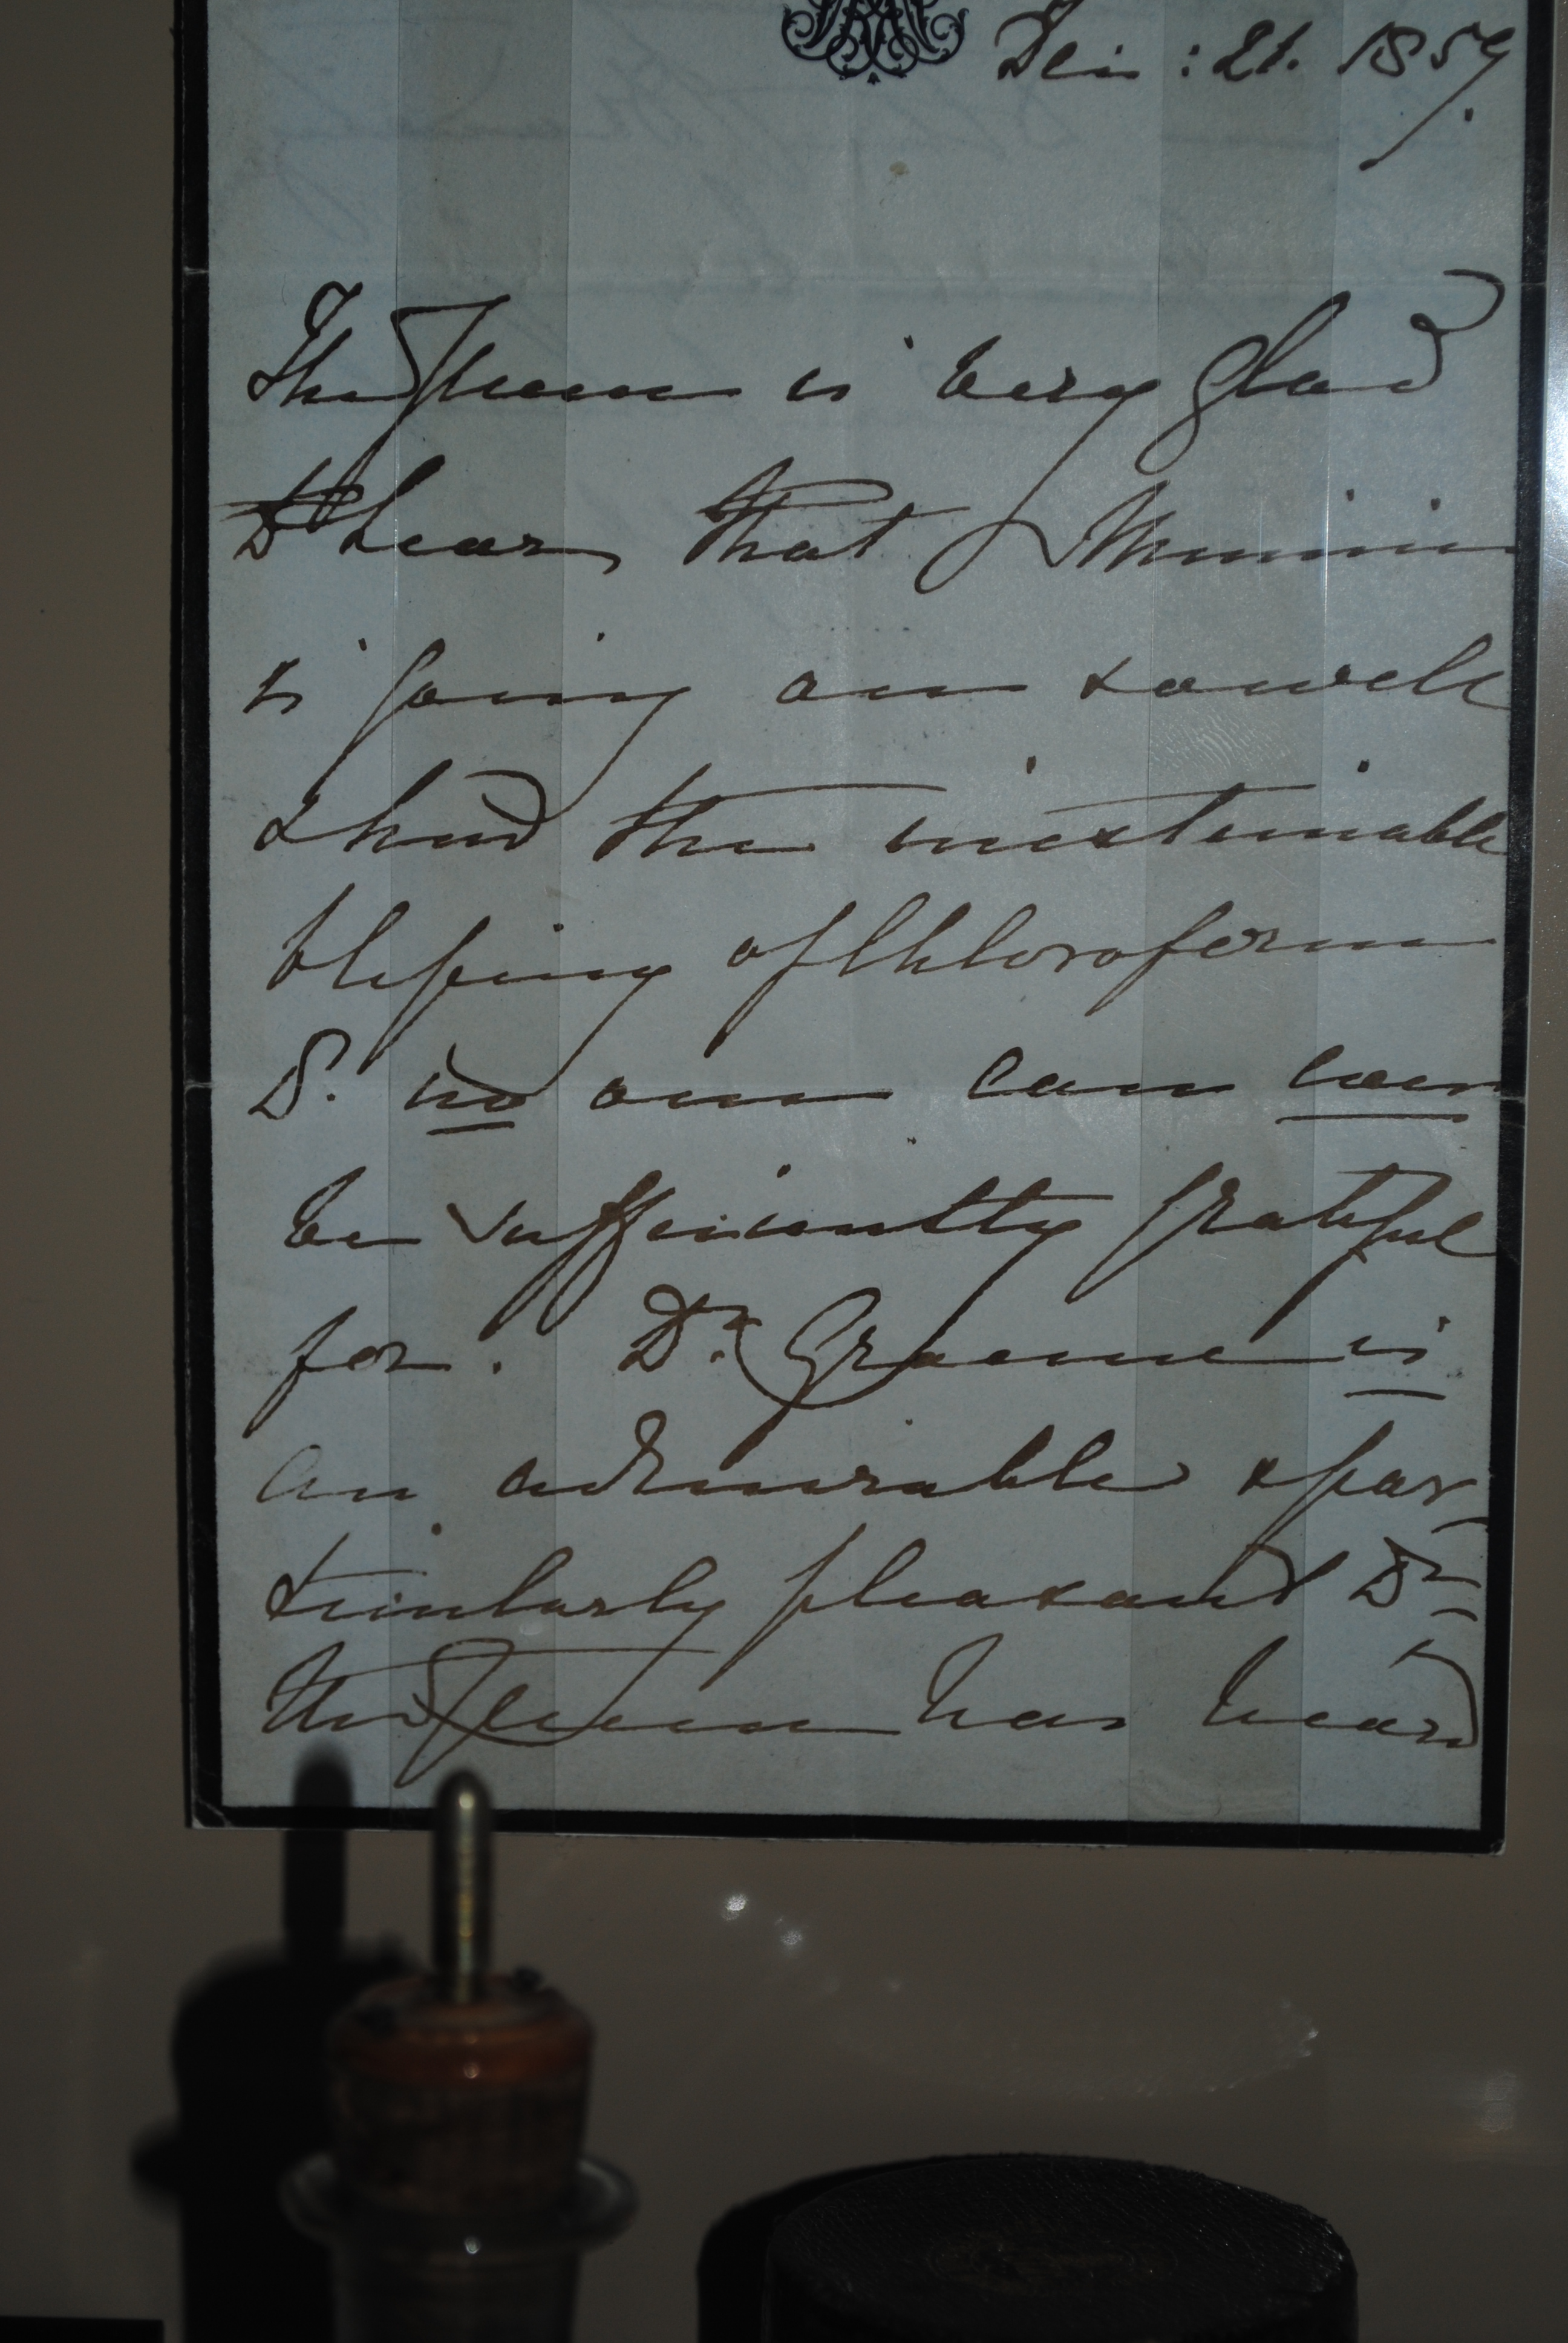 Dec: 21. 1859.
The Queen is very glad
to hear that Minnie
is going on so well
& had the inestimable
blessing of Chloroform
no one can ever
be sufficiently grateful
for. Dr. Graeme is
an admirable & par=
ticularly pleasant Dr=
the Queen has heard